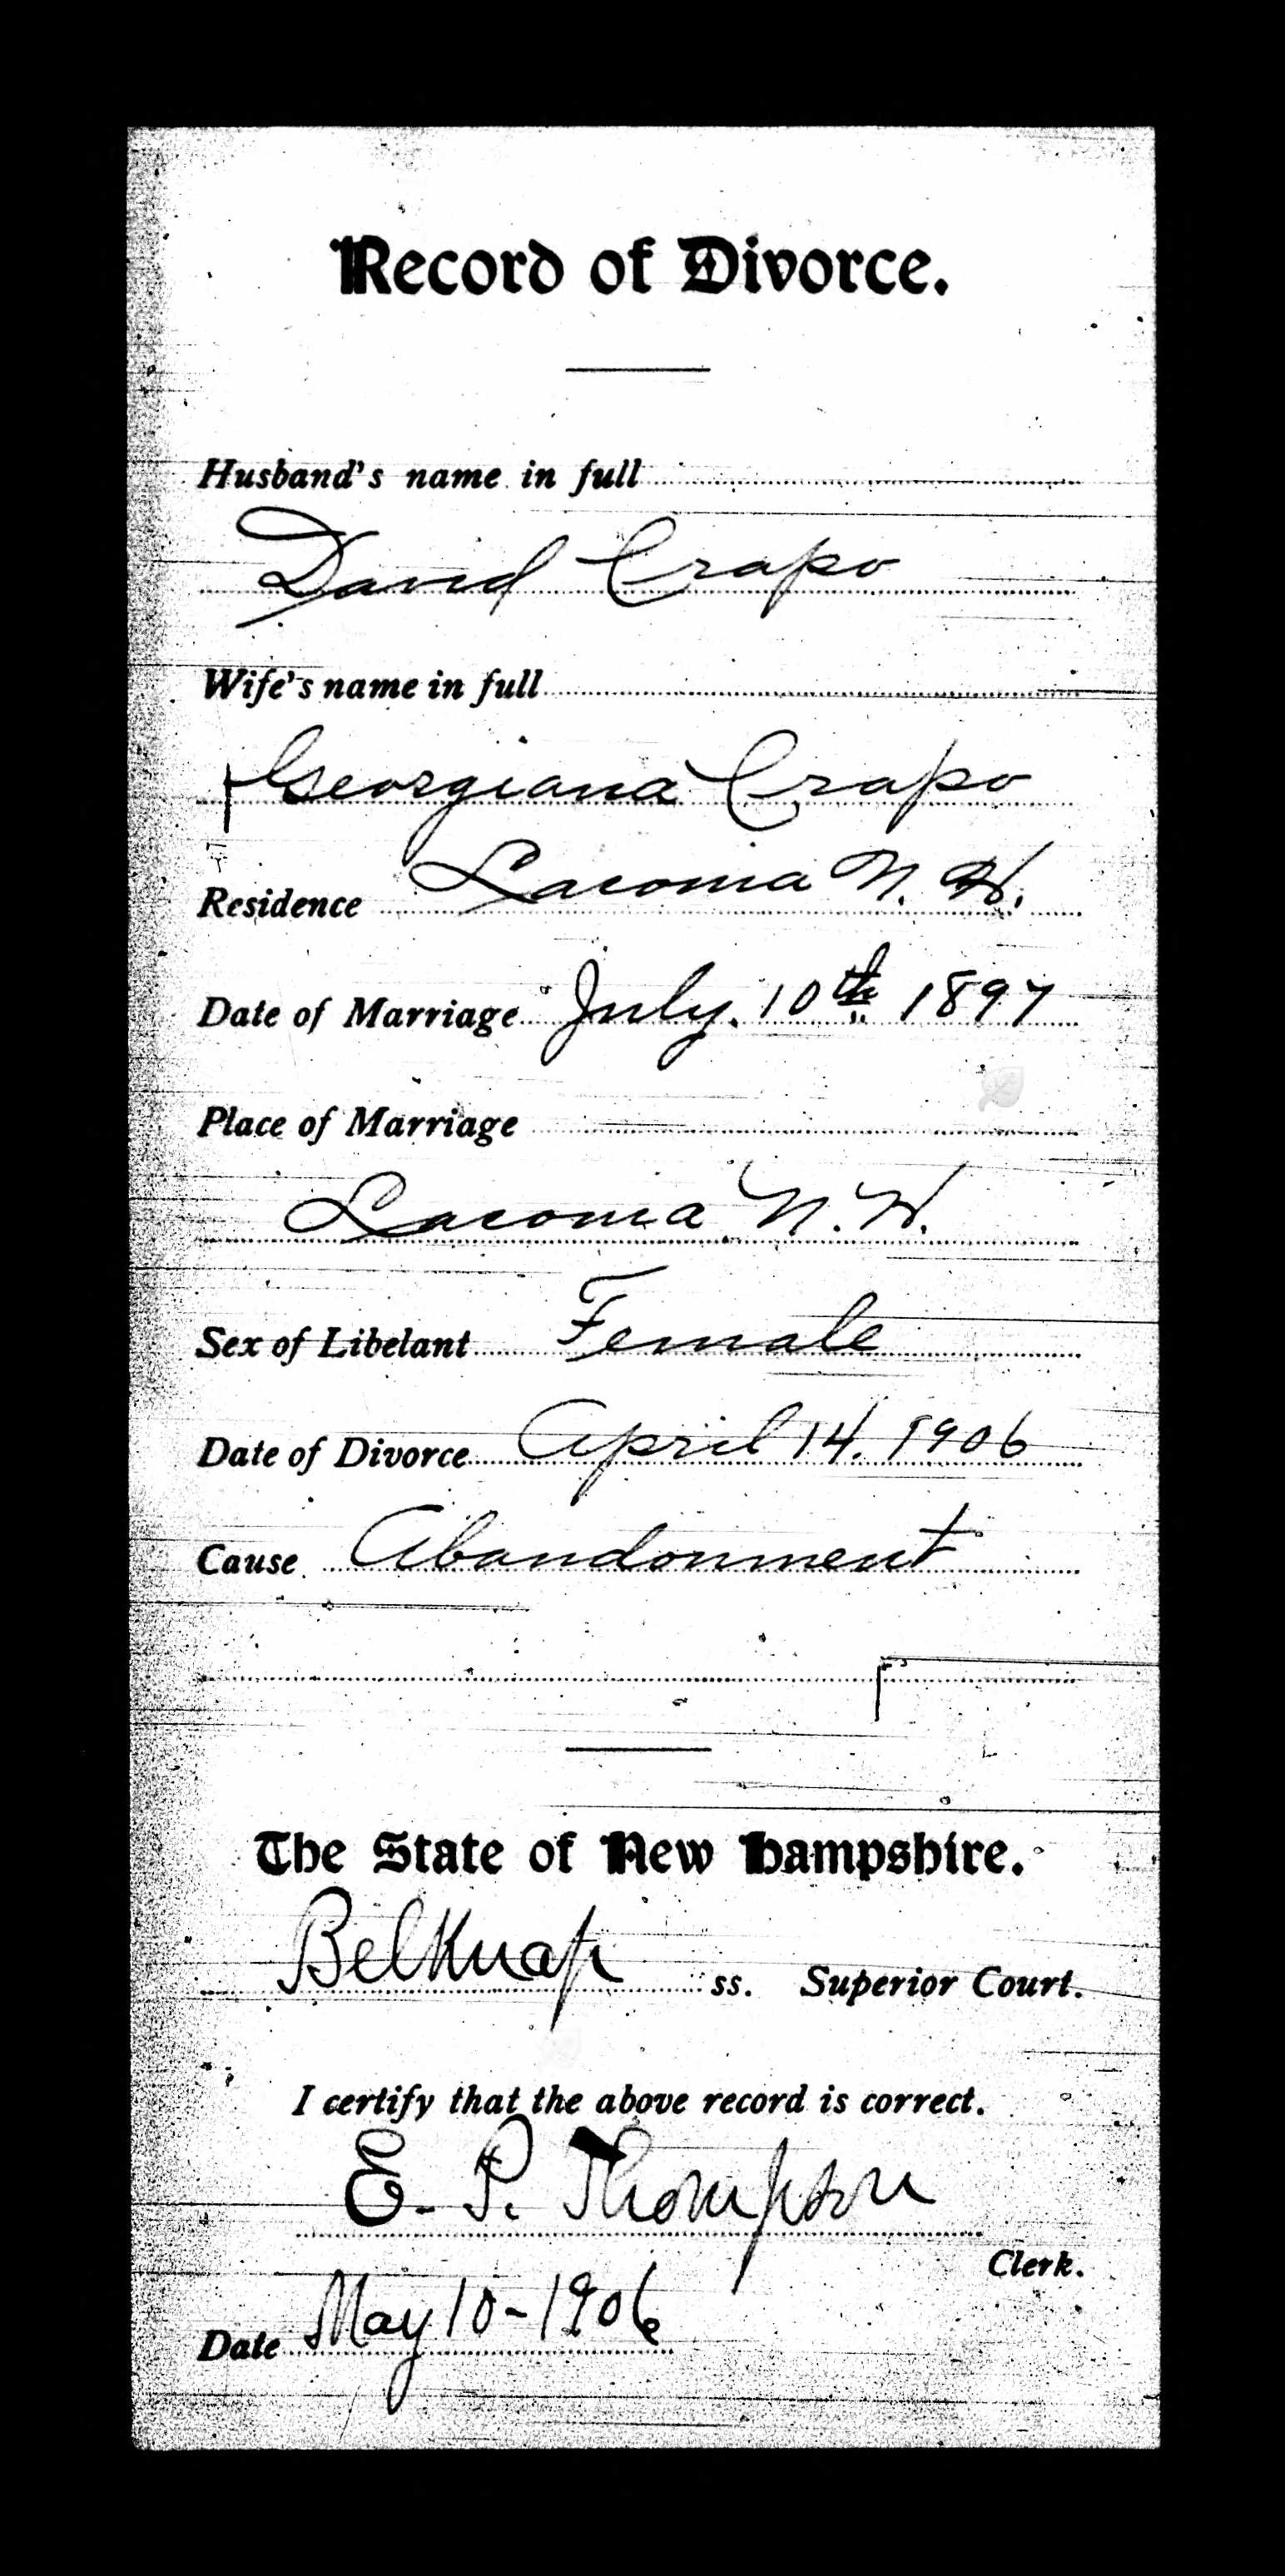 Record of Divorce.
Husband's name in full
David Crapo
Wife's name in full
Georgiana Crapo
Residence Laconia N. H.
Date of Marriage July. 10th 1897
Place of Marriage
Laconia N. H.
Sex of Libelant Female
Date of Divorce April 14. 1906
Cause Abandonment
The State of New Hampshire.
Belknap ss. Superior Court.
I certify that the above record is correct.
E. P. Thompson
Clerk.
Date May 10-1906